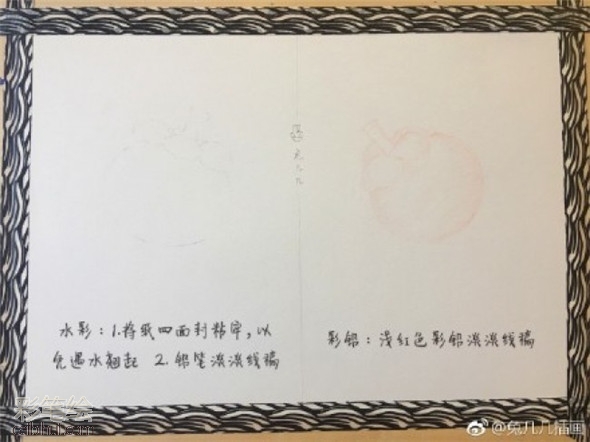 兔几几
水彩：1.将纸四面封粘牢，以
免遇水翘起 2.铅笔淡淡线稿
彩铅：浅红色彩铅淡淡线稿
彩笔绘
@兔几儿插画